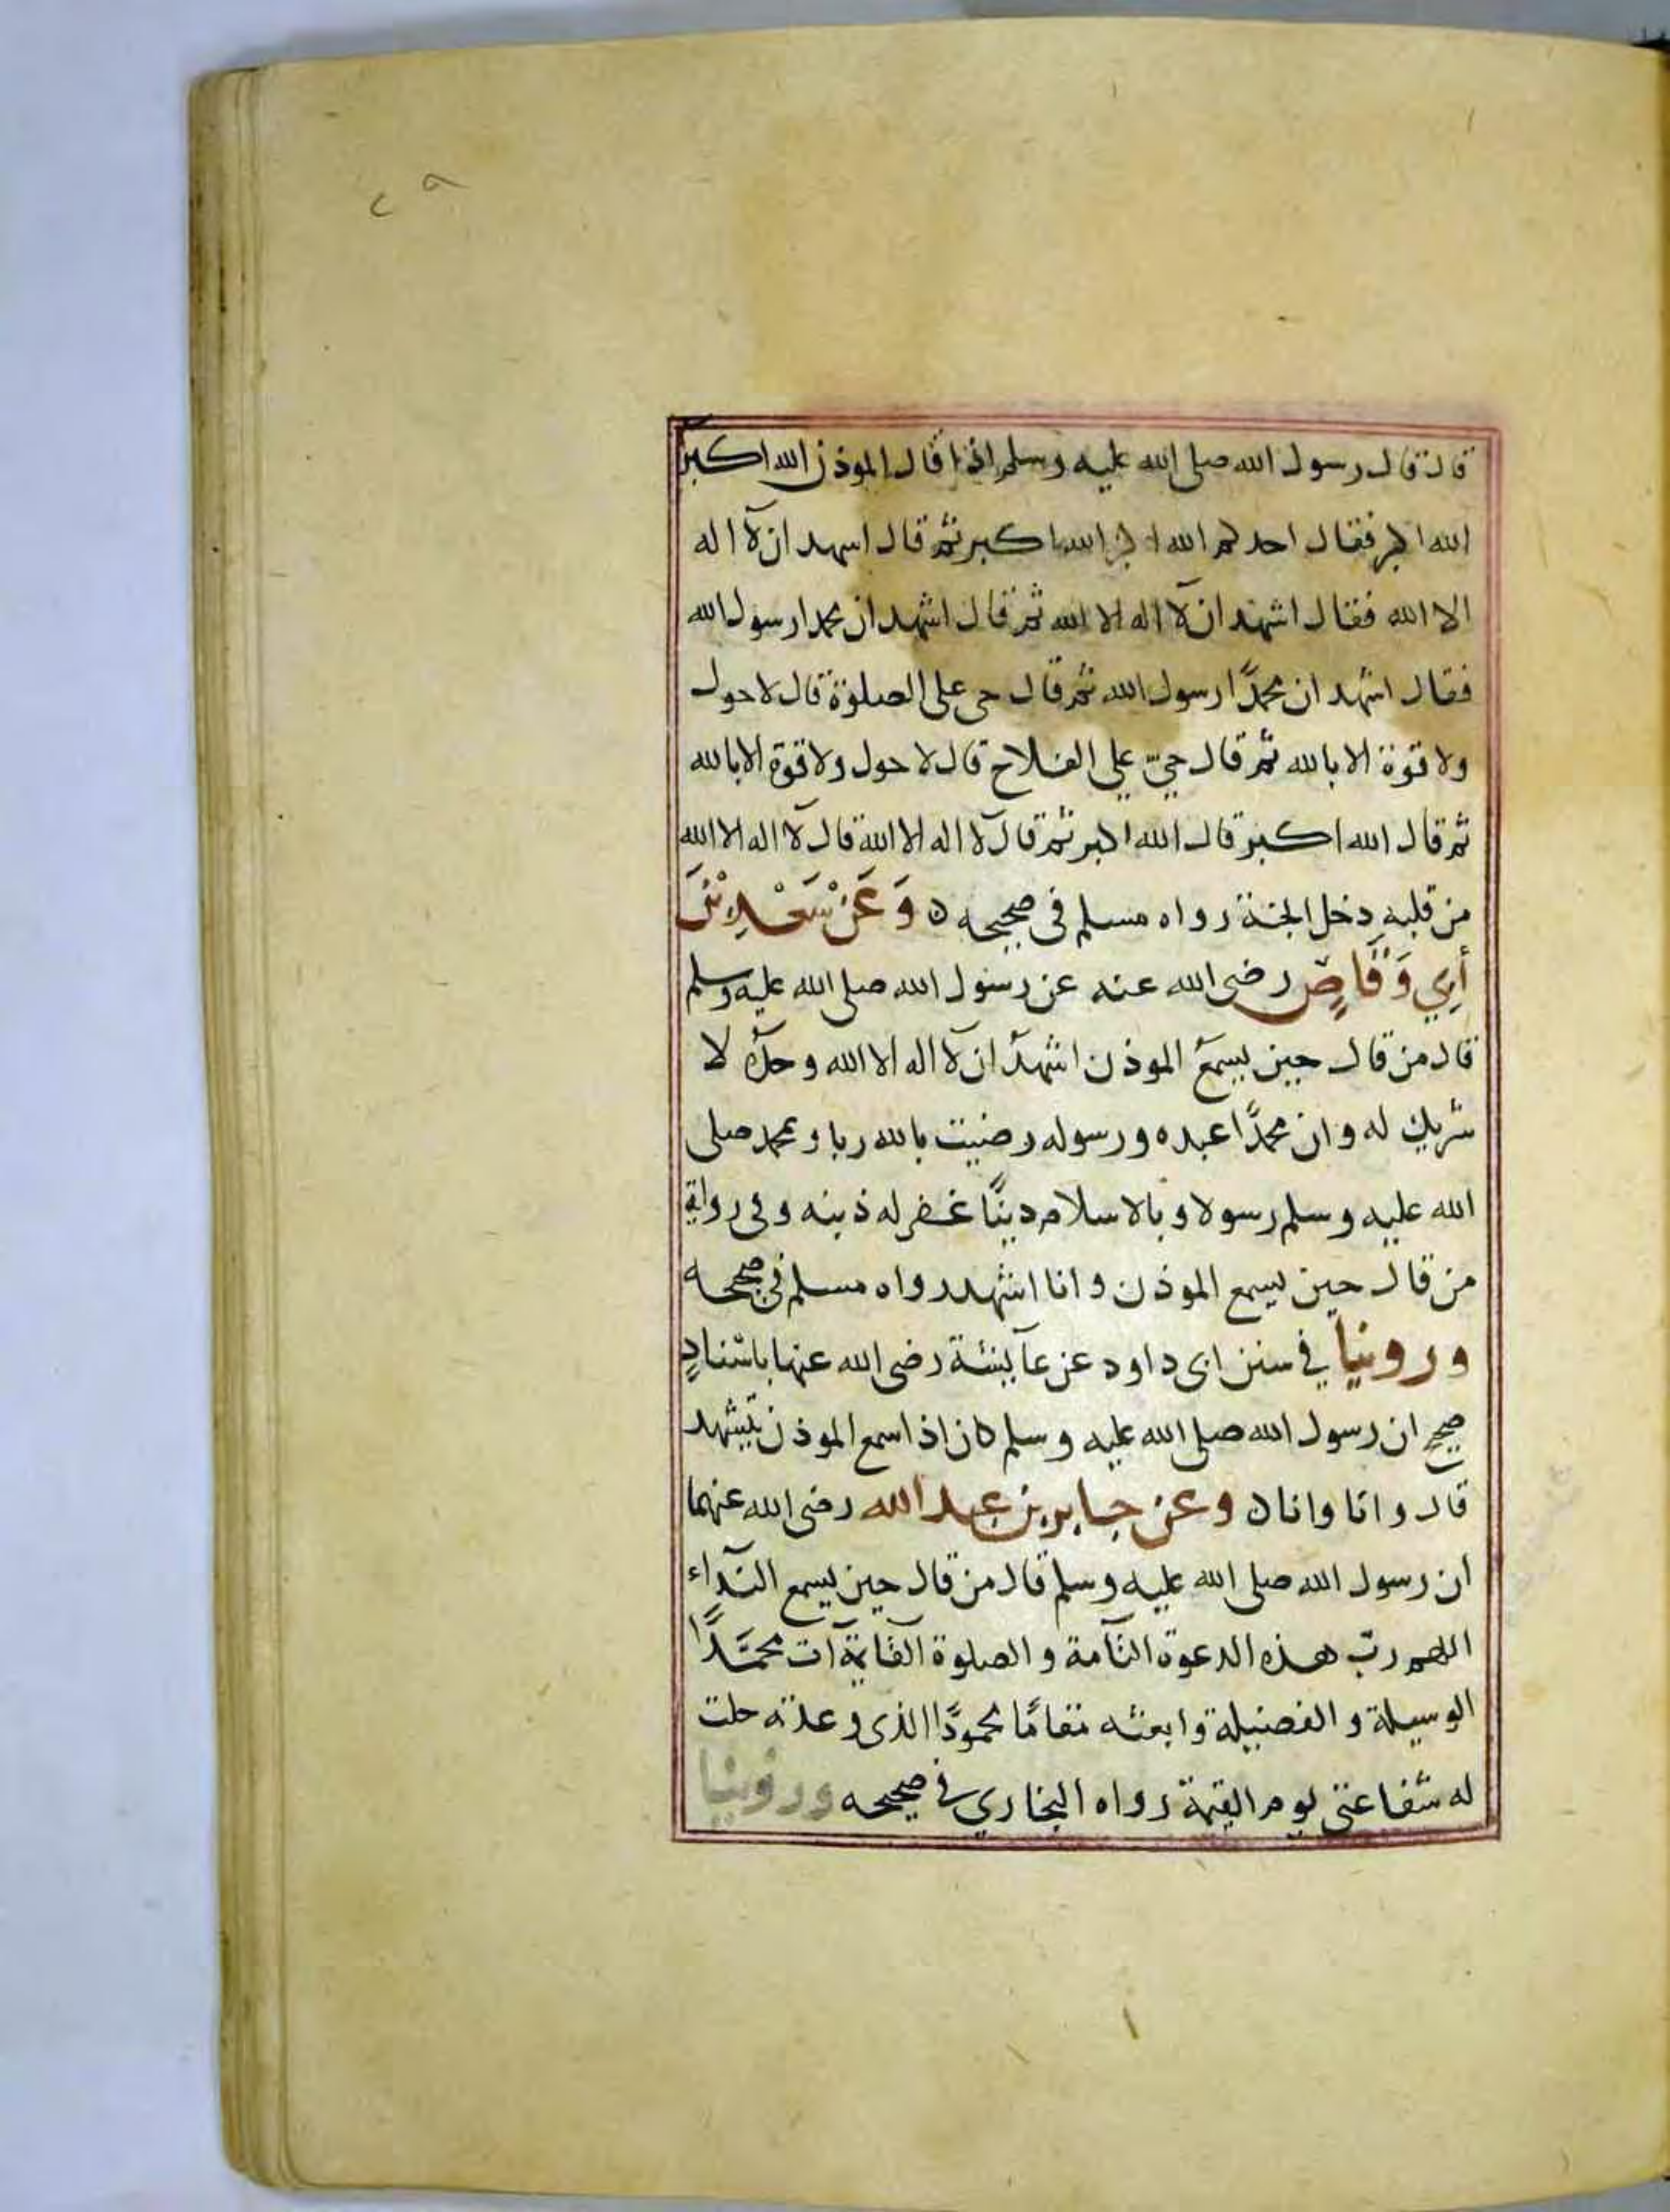 ٢٩
قال قال رسول الله صلى الله عليه وسلم اذا قال الموذن الله اكبر
الله اكبر فقال احدكم الله اكبر الله اكبر ثم قال اسهد ان لآ اله
الا الله فقال اشهد ان لآ اله الا الله ثم قال اشهد ان محمدا رسول الله
فقال اشهد ان محمدًا رسول الله ثم قال حى على الصلوة قال لا حول
ولا قوة الا بالله ثم قال حيّ على الفلاح قال لا حول ولا قوة الا بالله
ثم قال الله اكبر قال الله اكبر ثم قال لآ اله الا الله قال لآ اله الا الله
من قلبه دخل الجنة رواه مسلم فى صحيحه ۵ وَعَنْ سَعْدِ بْنِ
أَبِي وَقَّاصٍ رضى الله عنه عن رسول الله صلى الله عليه وسلم
قال من قال حين يسمع الموذن اشهد ان لآ اله الا الله وحده لا
شريك له وان محمدًا عبده ورسوله رضيت بالله ربا وبمحمد صلى
الله عليه وسلم رسولا وبالاسلام دينًا غفر له ذنبه وفى رواية
من قال حين يسمع الموذن وانا اشهد رواه مسلم فى صحيحه
وروينا في سنن ابى داود عن عآيشة رضى الله عنها باسْنادٍ
صحيح ان رسول الله صلى الله عليه وسلم كان اذا سمع الموذن يتشهد
قال وانا وانا ۵ وعن جابر بن عبد الله رضى الله عنهما
ان رسول الله صلى الله عليه وسلم قال من قال حين يسمع النّدآء
اللهم ربّ هذه الدعوة التآمة والصلوة القآيمة آت محمَّدًا
الوسيلة والفضيلة وابعثه مقامًا محمودًا الذى وعدته حلت
له شفاعتى يوم القيمة رواه البخاري فى صحيحه وروينا